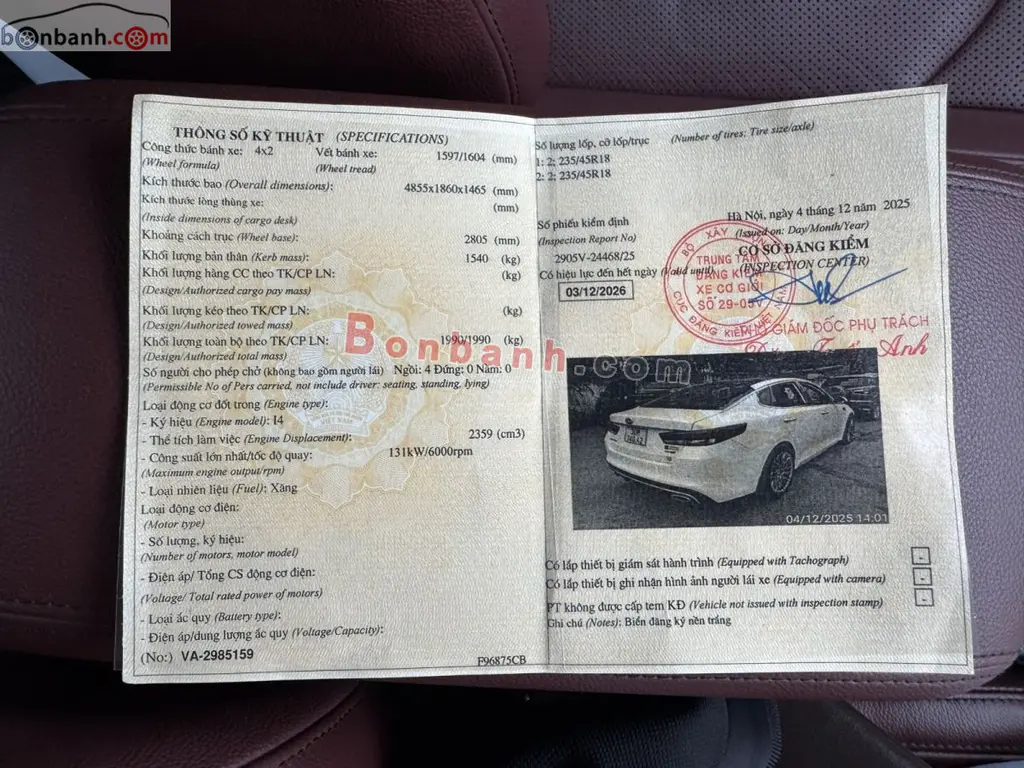 bonbanh.com
THÔNG SỐ KỸ THUẬT (SPECIFICATIONS)
Công thức bánh xe: 4x2 Vết bánh xe: 1597/1604 (mm)
(Wheel formula) (Wheel tread)
Kích thước bao (Overall dimensions): 4855x1860x1465 (mm)
Kích thước lòng thùng xe: (mm)
(Inside dimensions of cargo desk)
Khoảng cách trục (Wheel base): 2805 (mm)
Khối lượng bản thân (Kerb mass): 1540 (kg)
Khối lượng hàng CC theo TK/CP LN: (kg)
(Design/Authorized cargo pay mass)
Khối lượng kéo theo TK/CP LN: (kg)
(Design/Authorized towed mass)
Khối lượng toàn bộ theo TK/CP LN: 1990/1990 (kg)
(Design/Authorized total mass)
Số người cho phép chở (không bao gồm người lái) Ngồi: 4 Đứng: 0 Nằm: 0
(Permissible No of Pers carried, not include driver: seating, standing, lying)
Loại động cơ đốt trong (Engine type):
- Ký hiệu (Engine model): I4
- Thể tích làm việc (Engine Displacement): 2359 (cm3)
- Công suất lớn nhất/tốc độ quay: 131kW/6000rpm
(Maximum engine output/rpm)
- Loại nhiên liệu (Fuel): Xăng
Loại động cơ điện:
(Motor type)
- Số lượng, ký hiệu:
(Number of motors, motor model)
- Điện áp/ Tổng CS động cơ điện:
(Voltage/ Total rated power of motors)
- Loại ắc quy (Battery type):
- Điện áp/dung lượng ắc quy (Voltage/Capacity):
(No:) VA-2985159
F96875CB
Số lượng lốp, cỡ lốp/trục (Number of tires: Tire size/axle)
1: 2; 235/45R18
2: 2; 235/45R18
Hà Nội, ngày 4 tháng 12 năm 2025
Số phiếu kiểm định (Issued on: Day/Month/Year)
(Inspection Report No) CƠ SỞ ĐĂNG KIỂM
2905V-24468/25 (INSPECTION CENTER)
Có hiệu lực đến hết ngày (Valid until)
03/12/2026
BỘ XÂY DỰNG
TRUNG TÂM
ĐĂNG KIỂM
XE CƠ GIỚI
SỐ 29-05V
CỤC ĐĂNG KIỂM VIỆT NAM
GIÁM ĐỐC PHỤ TRÁCH
Anh
Bonbanh.com
04/12/2025 14:01
Có lắp thiết bị giám sát hành trình (Equipped with Tachograph) -
Có lắp thiết bị ghi nhận hình ảnh người lái xe (Equipped with camera) -
PT không được cấp tem KĐ (Vehicle not issued with inspection stamp) -
Ghi chú (Notes): Biển đăng ký nền trắng